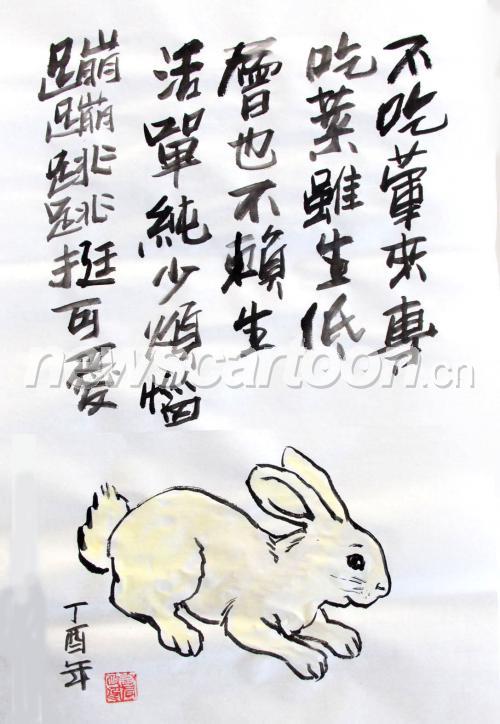 不吃葷來專
吃菜雖生低
層也不賴生
活單純少煩惱
蹦蹦跳跳挺可愛
newscartoon.cn
丁酉年